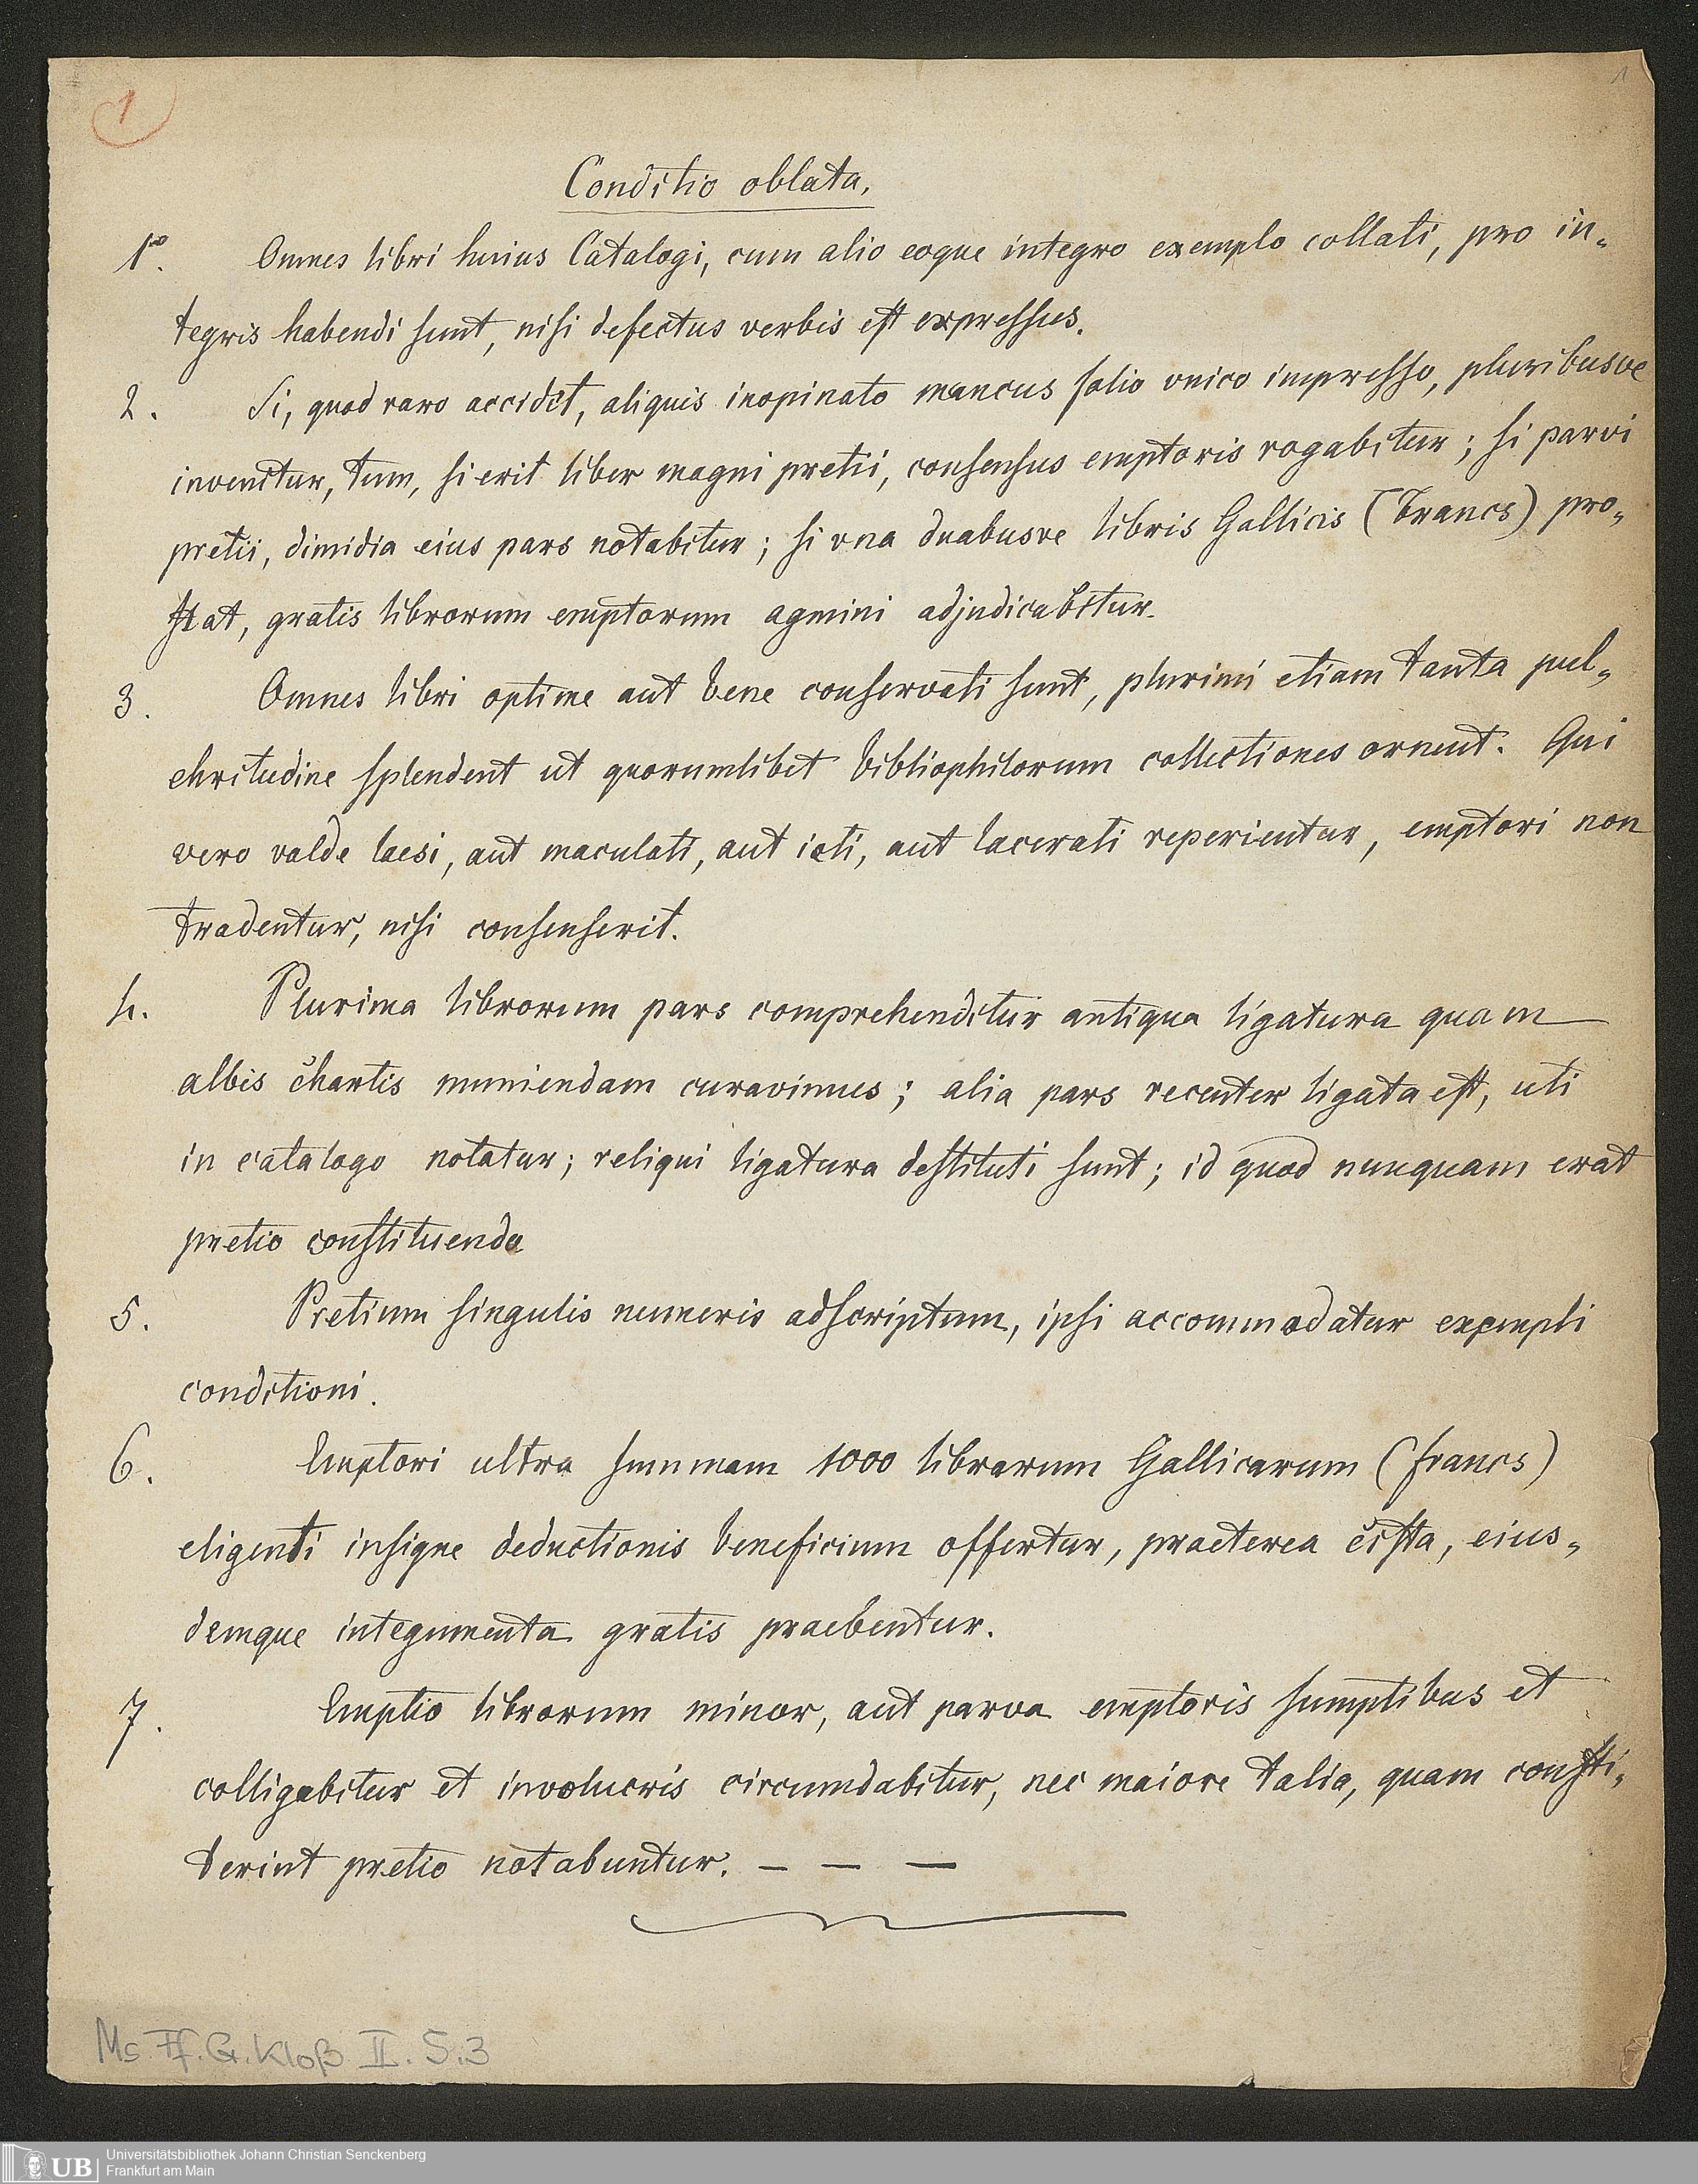 1
1
Conditio oblata.
1º. Omnes libri huius Catalogi, cum alio eoque integro exemplo collati, pro in„
tegris habendi sunt, nisi defectus verbis est expressus.
2. Si, quod raro accidit, aliquis inopinato mancus folio unico impresso, pluribusve
invenitur, tum, si erit liber magni pretii, consensus emptoris rogabitur; si parvi
pretii, dimidia eius pars notabitur; si una duabusve libris Gallicis (Francs) pro„
stat, gratis librorum emptorum agmini adjudicabitur.
3. Omnes libri optime aut bene conservati sunt, plurimi etiam tanta pul„
chritudine splendent ut quorumlibet bibliophilorum collectiones ornent. Qui
vero valde laesi, aut maculati, aut icti, aut lacerati reperientur, emptori non
tradentur, nisi consenserit.
4. Plurima librorum pars comprehenditur antiqua ligatura quam
albis chartis muniendam curavimus; alia pars recenter ligata est, uti
in catalogo notatur; reliqui ligatura destituti sunt; id quod nunquam erat
pretio constituendo
5. Pretium singulis numeris adscriptum, ipsi accommodatur exempli
conditioni.
6. Emptori ultra summam 1000 librarum Gallicarum (francs)
eligenti insigne deductionis beneficium offertur, praeterea cista, eius„
demque integumenta gratis praebentur.
7. Emptio librorum minor, aut parva emptoris sumptibus et
colligabitur et involucris circumdabitur, nec maiore talia, quam consti„
terint pretio notabuntur. — — —
Ms. Ff. G. Kloß II. S. 3
UB Universitätsbibliothek Johann Christian Senckenberg
Frankfurt am Main